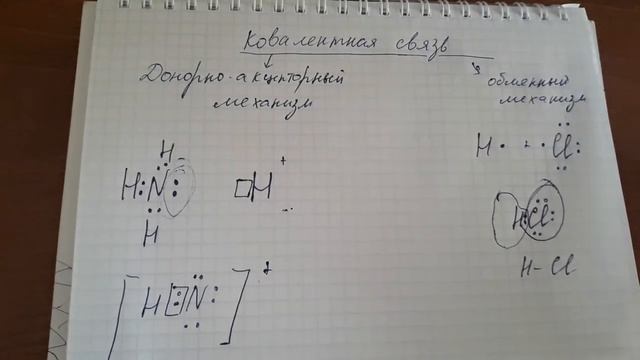 Ковалентная связь
Донорно-акцепторный
механизм
обменный
механизм
H
H:N:
H
□H+
H· + ·Cl:
H:Cl:
H-Cl
[H:N:]+